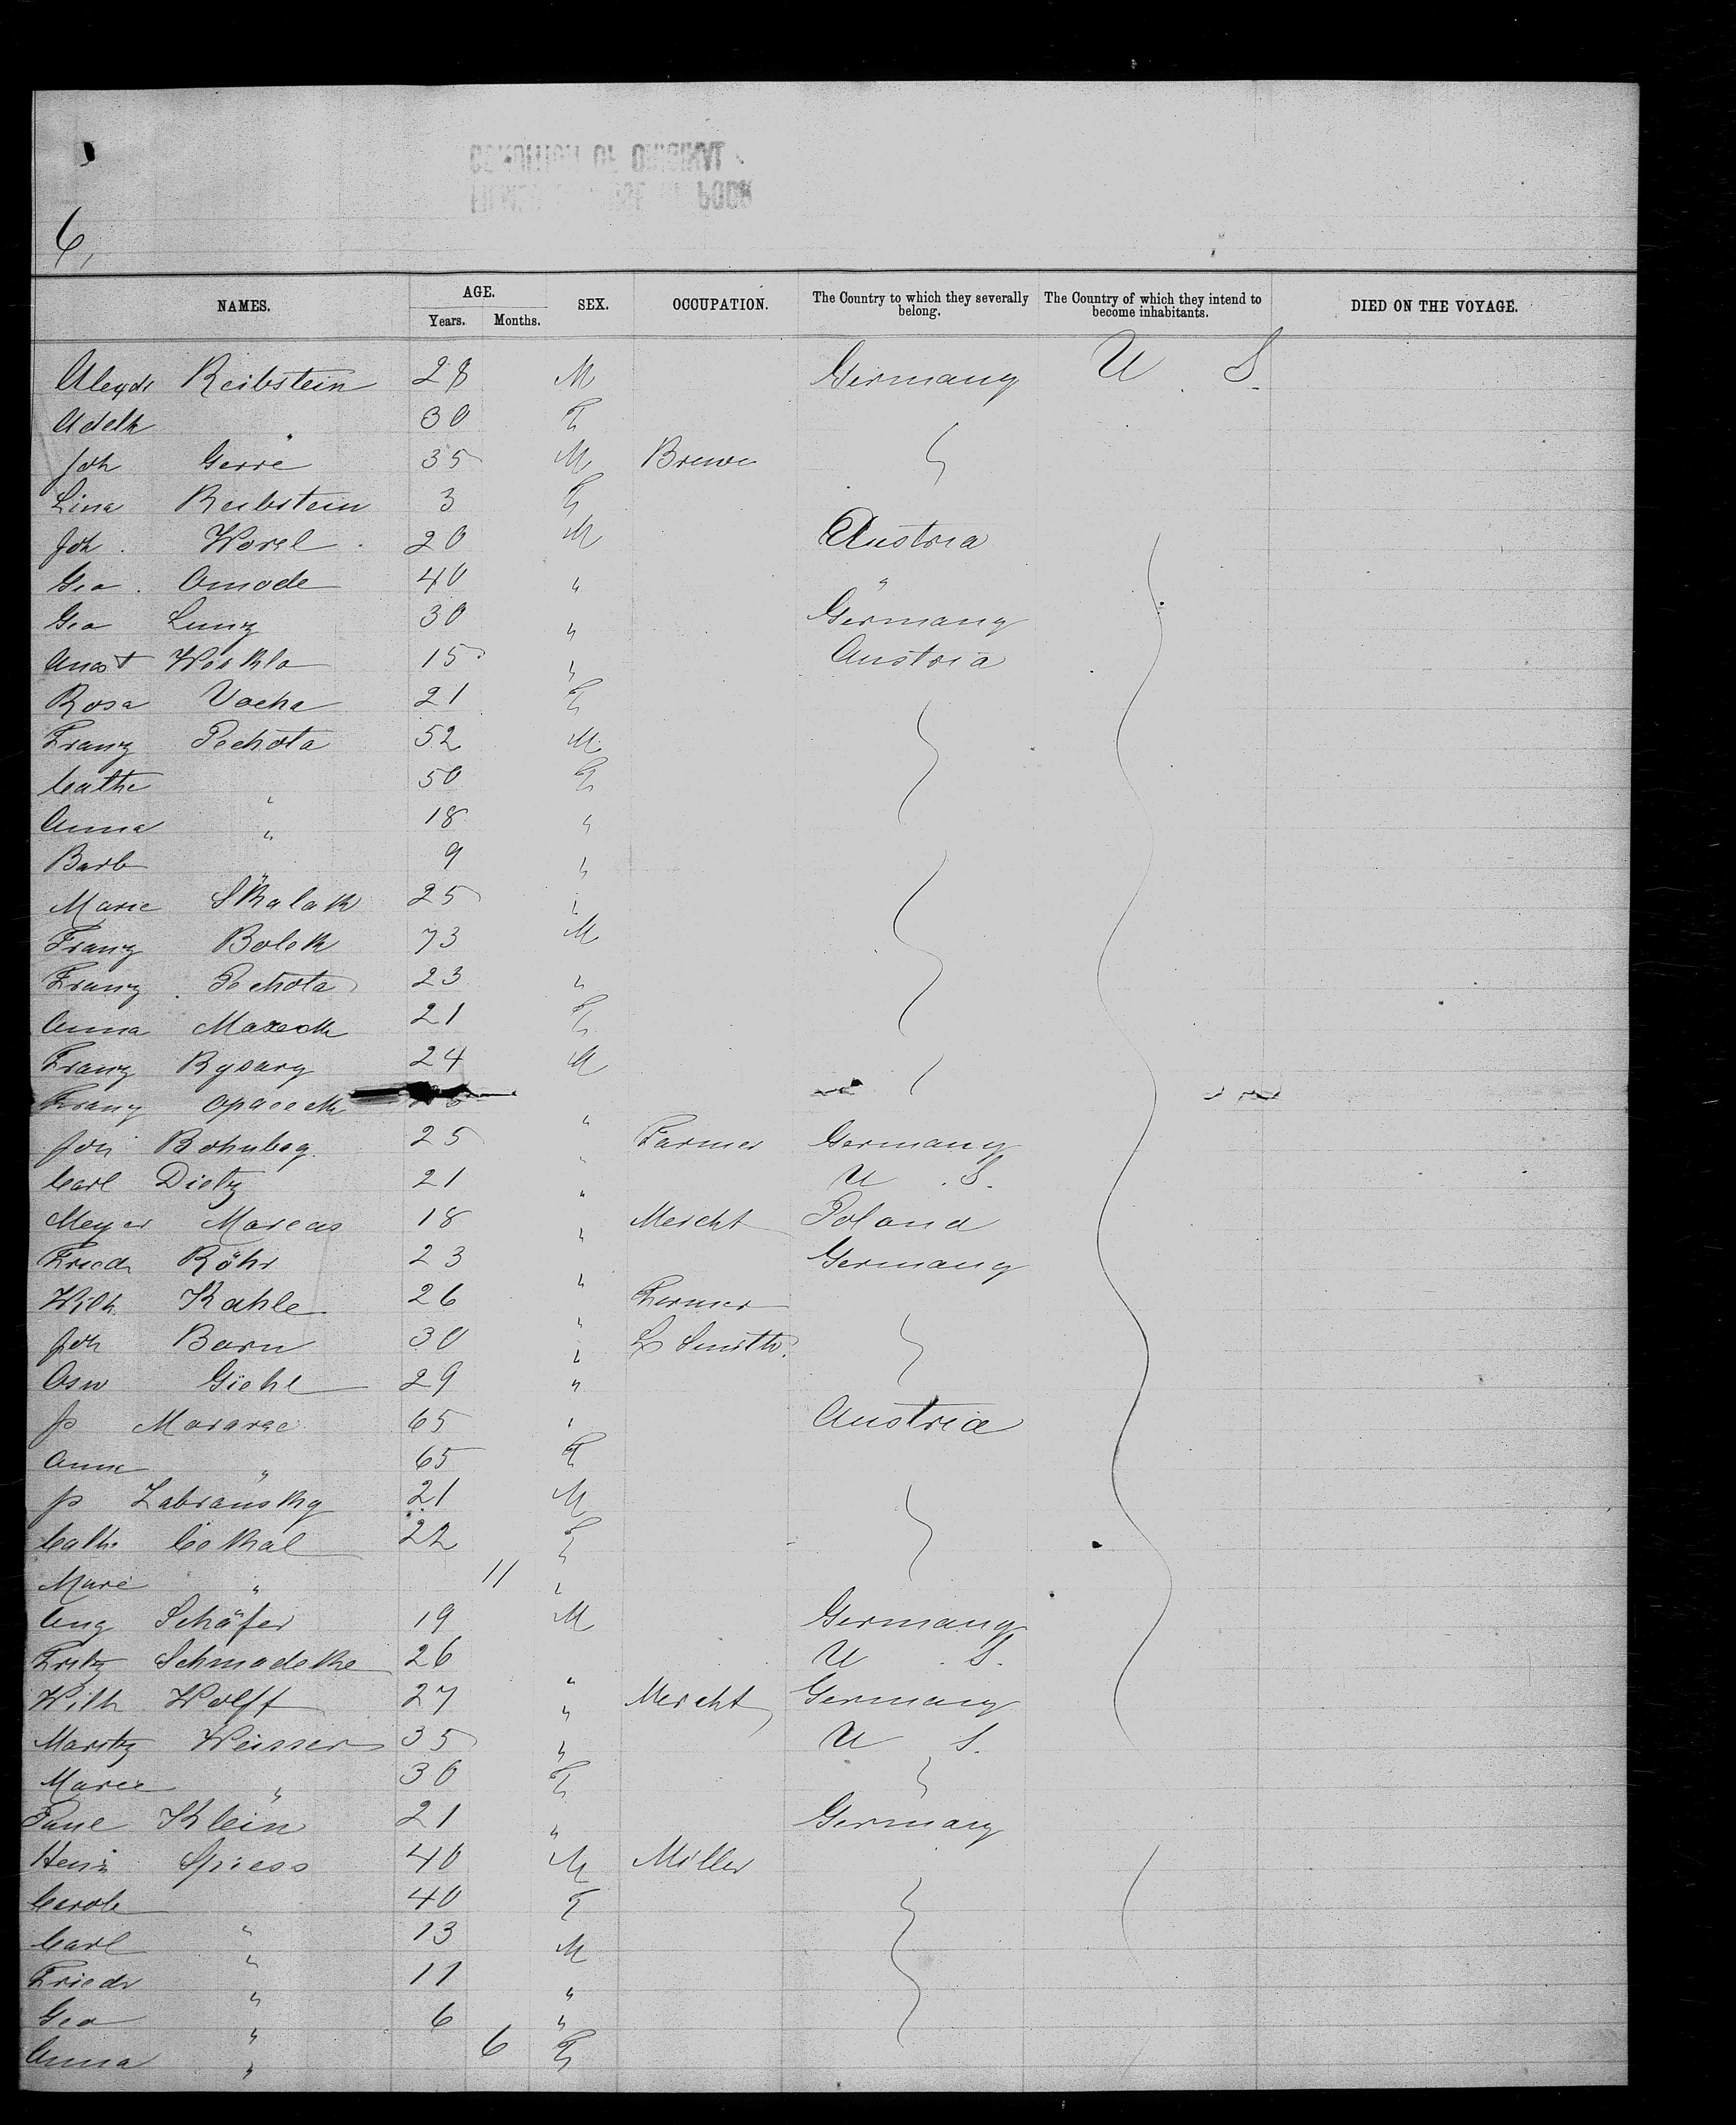 6,
NAMES. AGE. Years. Months. SEX. OCCUPATION. The Country to which they severally belong. The Country of which they intend to become inhabitants. DIED ON THE VOYAGE.
Reibstein 28 M Germany U S.
Adelh " 30 F
Joh Gerre 35 M
Lina Reibstein 3 F
Joh. Worel 20 M Austria
Geo. Omode 40 " "
Geo Lunz 30 " Germany
Anast 15 " Austria
Rosa Vacha 21 F
Franz Pechota 52 M
Cathe " 50 F
Anna " 18 "
Barb " 9 "
Marie Skalak 25 "
Franz Bolek 73 M
Franz Pechota 23 "
Anna 21 F
Franz Rysavy 24 M
Franz "
25 " Farmer Germany
Carl Dietz 21 " U. S.
Meyer Marcas 18 " Mercht Poland
Friedr Röhr 23 " Germany
Wilh. Kahle 26 " Farmer
Joh Born 30 " Smith.
Osw Giehl 29 "
Jo 65 " Austria
Anna " 65 F
Jo Zabransky 21 M
Cathe 22 F
Marie " 11 "
Aug Schäfer 19 M Germany
Fritz Schmadeke 26 " U. S.
Wilh Wolff 27 " Mercht Germany
Moritz Weisser 35 " U S.
Marie " 30 F
Klein 21 " Germany
Heinr Spiess 40 M Miller
Carole " 40 F
Carl " 13 M
Friedr " 11 "
Geo " 6 "
Anna " 6 F